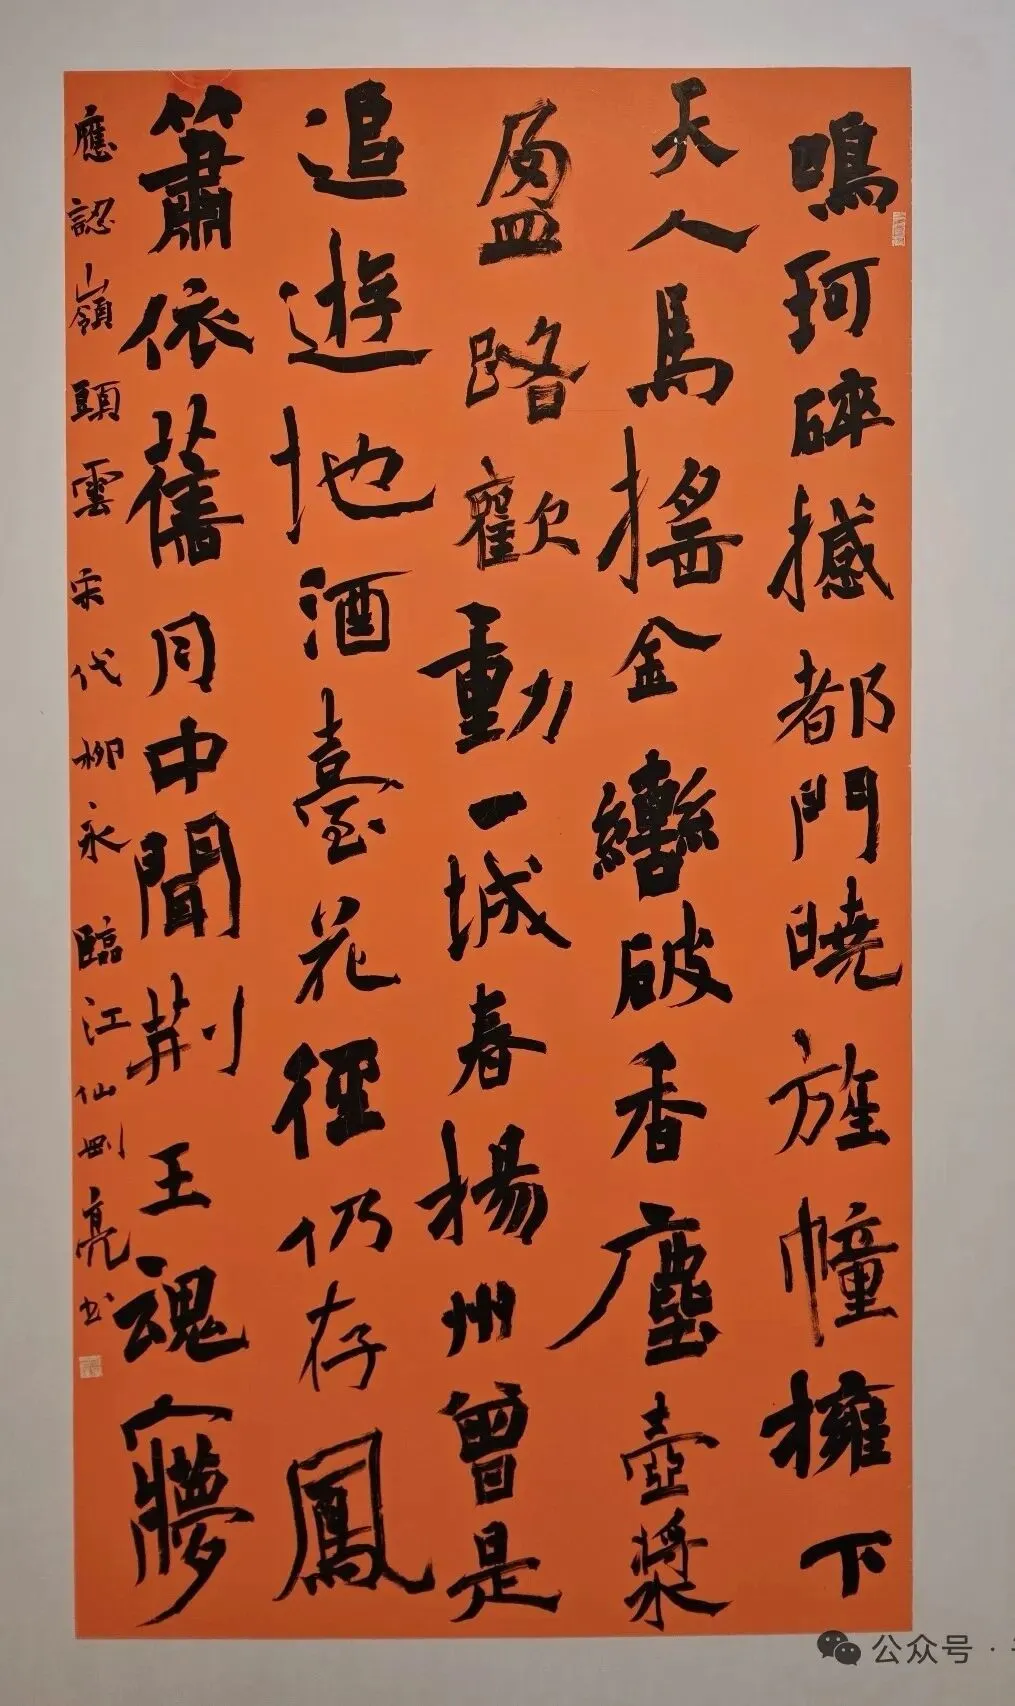 鳴珂碎撼都門曉旌幢擁下
天人馬搖金轡破香塵壺漿
盈路歡動一城春揚州曾是
追遊地酒臺花徑仍存鳳
簫依舊月中聞荆王魂夢
應認嶺頭雲宋代柳永臨江仙劉亮书
公众号